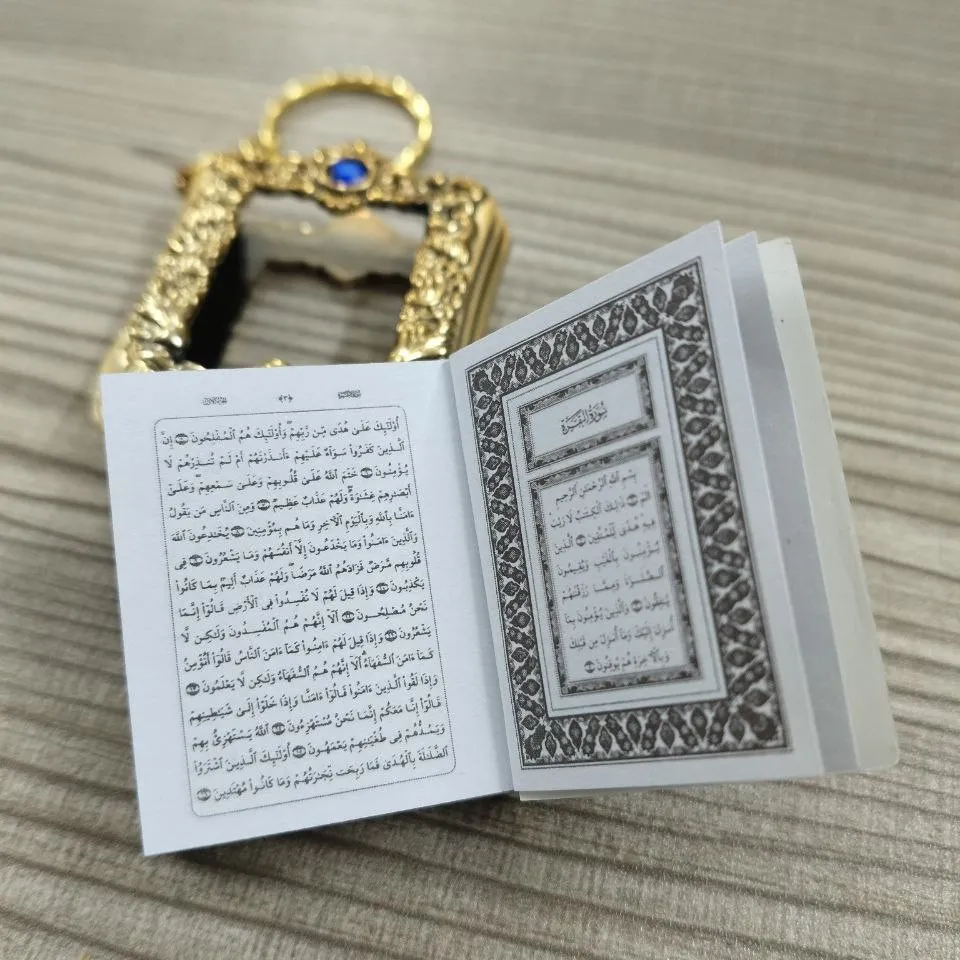 سُورَةُ البَقَرَةِ
بِسْمِ ٱللَّهِ ٱلرَّحْمَٰنِ ٱلرَّحِيمِ
الٓمٓ ذَٰلِكَ ٱلْكِتَٰبُ لَا رَيْبَ
فِيهِ هُدًى لِّلْمُتَّقِينَ ٱلَّذِينَ
يُؤْمِنُونَ بِٱلْغَيْبِ وَيُقِيمُونَ
ٱلصَّلَوٰةَ وَمِمَّا رَزَقْنَٰهُمْ
يُنفِقُونَ وَٱلَّذِينَ يُؤْمِنُونَ بِمَآ
أُنزِلَ إِلَيْكَ وَمَآ أُنزِلَ مِن قَبْلِكَ
وَبِٱلْأَخِرَةِ هُمْ يُوقِنُونَ
﴿٣﴾
أُوْلَٰٓئِكَ عَلَىٰ هُدًى مِّن رَّبِّهِمْ وَأُوْلَٰٓئِكَ هُمُ ٱلْمُفْلِحُونَ إِنَّ
ٱلَّذِينَ كَفَرُوا۟ سَوَآءٌ عَلَيْهِمْ ءَأَنذَرْتَهُمْ أَمْ لَمْ تُنذِرْهُمْ لَا
يُؤْمِنُونَ خَتَمَ ٱللَّهُ عَلَىٰ قُلُوبِهِمْ وَعَلَىٰ سَمْعِهِمْ وَعَلَىٰٓ
أَبْصَٰرِهِمْ غِشَٰوَةٌ وَلَهُمْ عَذَابٌ عَظِيمٌ وَمِنَ ٱلنَّاسِ مَن يَقُولُ
ءَامَنَّا بِٱللَّهِ وَبِٱلْيَوْمِ ٱلْأَخِرِ وَمَا هُم بِمُؤْمِنِينَ يُخَٰدِعُونَ ٱللَّهَ
وَٱلَّذِينَ ءَامَنُوا۟ وَمَا يَخْدَعُونَ إِلَّآ أَنفُسَهُمْ وَمَا يَشْعُرُونَ فِى
قُلُوبِهِم مَّرَضٌ فَزَادَهُمُ ٱللَّهُ مَرَضًا وَلَهُمْ عَذَابٌ أَلِيمٌ بِمَا كَانُوا۟
يَكْذِبُونَ وَإِذَا قِيلَ لَهُمْ لَا تُفْسِدُوا۟ فِى ٱلْأَرْضِ قَالُوٓا۟ إِنَّمَا
نَحْنُ مُصْلِحُونَ أَلَآ إِنَّهُمْ هُمُ ٱلْمُفْسِدُونَ وَلَٰكِن لَّا
يَشْعُرُونَ وَإِذَا قِيلَ لَهُمْ ءَامِنُوا۟ كَمَآ ءَامَنَ ٱلنَّاسُ قَالُوٓا۟ أَنُؤْمِنُ
كَمَآ ءَامَنَ ٱلسُّفَهَآءُ أَلَآ إِنَّهُمْ هُمُ ٱلسُّفَهَآءُ وَلَٰكِن لَّا يَعْلَمُونَ
وَإِذَا لَقُوا۟ ٱلَّذِينَ ءَامَنُوا۟ قَالُوٓا۟ ءَامَنَّا وَإِذَا خَلَوْا۟ إِلَىٰ شَيَٰطِينِهِمْ
قَالُوٓا۟ إِنَّا مَعَكُمْ إِنَّمَا نَحْنُ مُسْتَهْزِءُونَ ٱللَّهُ يَسْتَهْزِئُ بِهِمْ
وَيَمُدُّهُمْ فِى طُغْيَٰنِهِمْ يَعْمَهُونَ أُوْلَٰٓئِكَ ٱلَّذِينَ ٱشْتَرَوُا۟
ٱلضَّلَٰلَةَ بِٱلْهُدَىٰ فَمَا رَبِحَت تِّجَٰرَتُهُمْ وَمَا كَانُوا۟ مُهْتَدِينَ